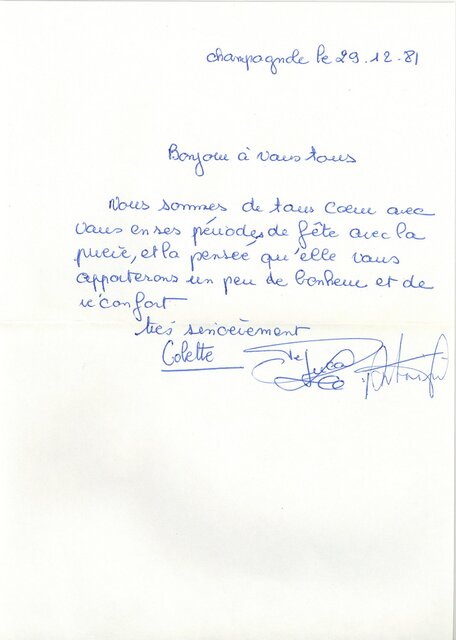 champagnole le 29.12.81
Bonjour à vous tous
Nous sommes de tous cœur avec
vous en ses périodes de fête avec la
prière, et la pensée qu'elle vous
apporterons un peu de bonheur et de
réconfort
très sincèrement
Colette